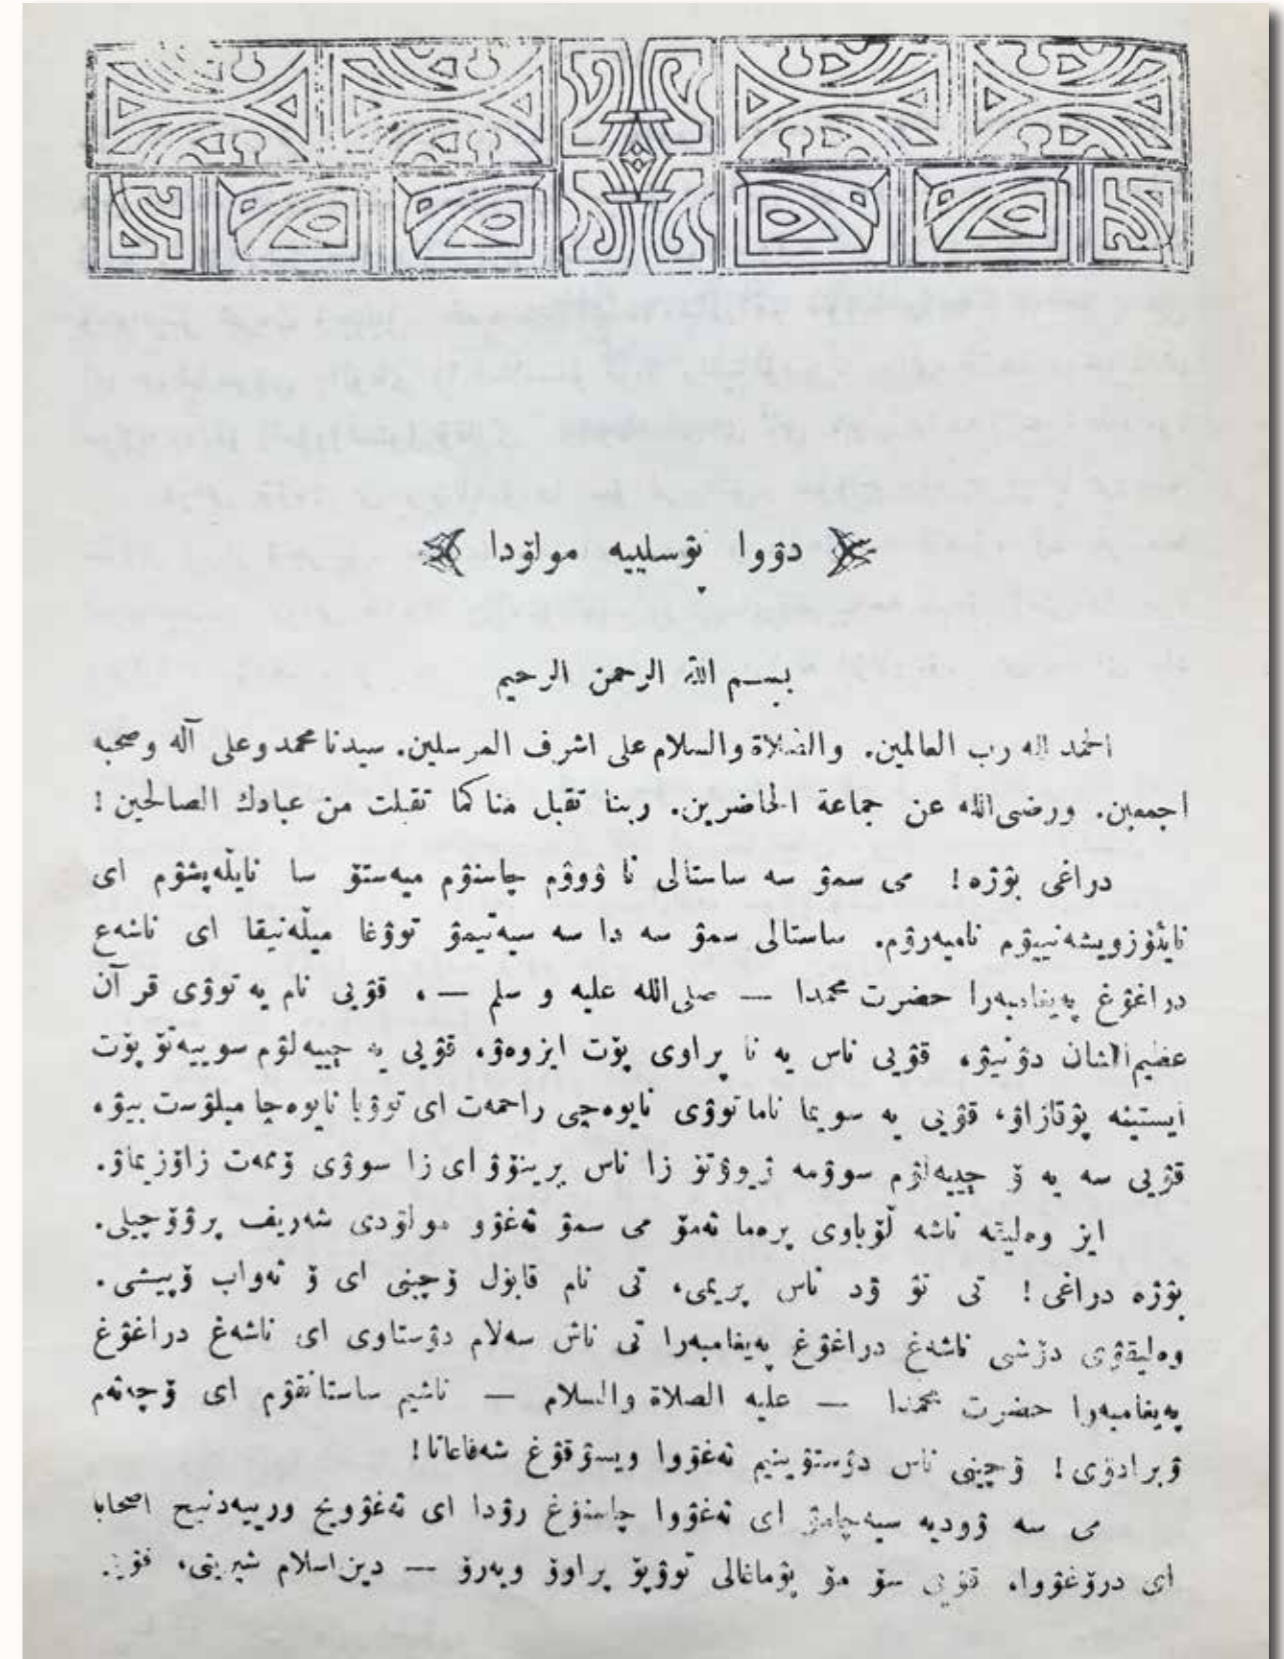 دۋووا پۆسلييه مولۆدا
بسم الله الرحمن الرحيم
الحمد لله رب العالمين. والصلاة والسلام على اشرف المرسلين. سيدنا محمد وعلى آله وصحبه
اجمعين. ورضى الله عن جماعة الحاضرين. ربنا تقبل منا كما تقبلت من عبادك الصالحين!
دراغى بۆژه! مى سمۋ سه ساستالى نا ۋووۋم چاسنۋم ميەستۆ سا نايڵەپشۋم اى
نايئۆزويشەنييۋم نامیەرۋم. ساستالى سمۋ سه دا سه سيەتيمۋ توۋغا ميڵەنيقا اى ناشەع
دراغۋغ پەيغامبەرا حضرت محمدا — صلى الله عليه و سلم —، قۋيى نام يە توۋى قرآن
عظيم الشان دۋنيۋ، قۋيى ناس يە نا پراوى پۆت ايزوەۋ، قۋيى يە جييەلۋم سوييەتۆ پۆت
ايستينه پۋقازاۋ، قۋيى يە سويما ناما توۋى نايوەچى راحمەت اى توۋيا نايوەچا ميلۆست بيۋ،
قۋيى سه يە ۆ جييەلۋم سوۋمە ژيوۋتۆ زا ناس برينۆۋ اى زا سوۋى ۆممەت زاۆزيماۋ.
ايز وەليئه ناشە ڵۆباوى پرەما نەمۆ مى سمۋ نەغۆو مولۆدى شەريف پرۋۆچيلى.
بۆژه دراغى! تى تۆ ۋد ناس پريمى، تى نام قابۆل ۆچينى اى ۆ ثەواب ۆپيشى.
وەليقۋى دۆشى ناشەغ دراغۋغ پەيغامبەرا تى ناش سەلام دۋستاوى اى ناشەغ دراغۋغ
پەيغامبەرا حضرت محمدا — عليه الصلاة والسلام — ناشيم ساستانقۋم اى ۆچەنەم
ۋبرادۋى! ۆچينى ناس دۋستۆينيم نەغۆوا ويسۋقۋغ شەفاعاتا!
مى سه ۋوديە سيەچامۋ اى نەغۆوا چاسنۋغ رۋدا اى نەغۆويح ورييەدنيح اصحابا
اى درۆغۆوا، قۋيى سۆ مۆ پۋماغالى توۋيۆ پراوۆ ويەرۆ — دين اسلام شيريتى،